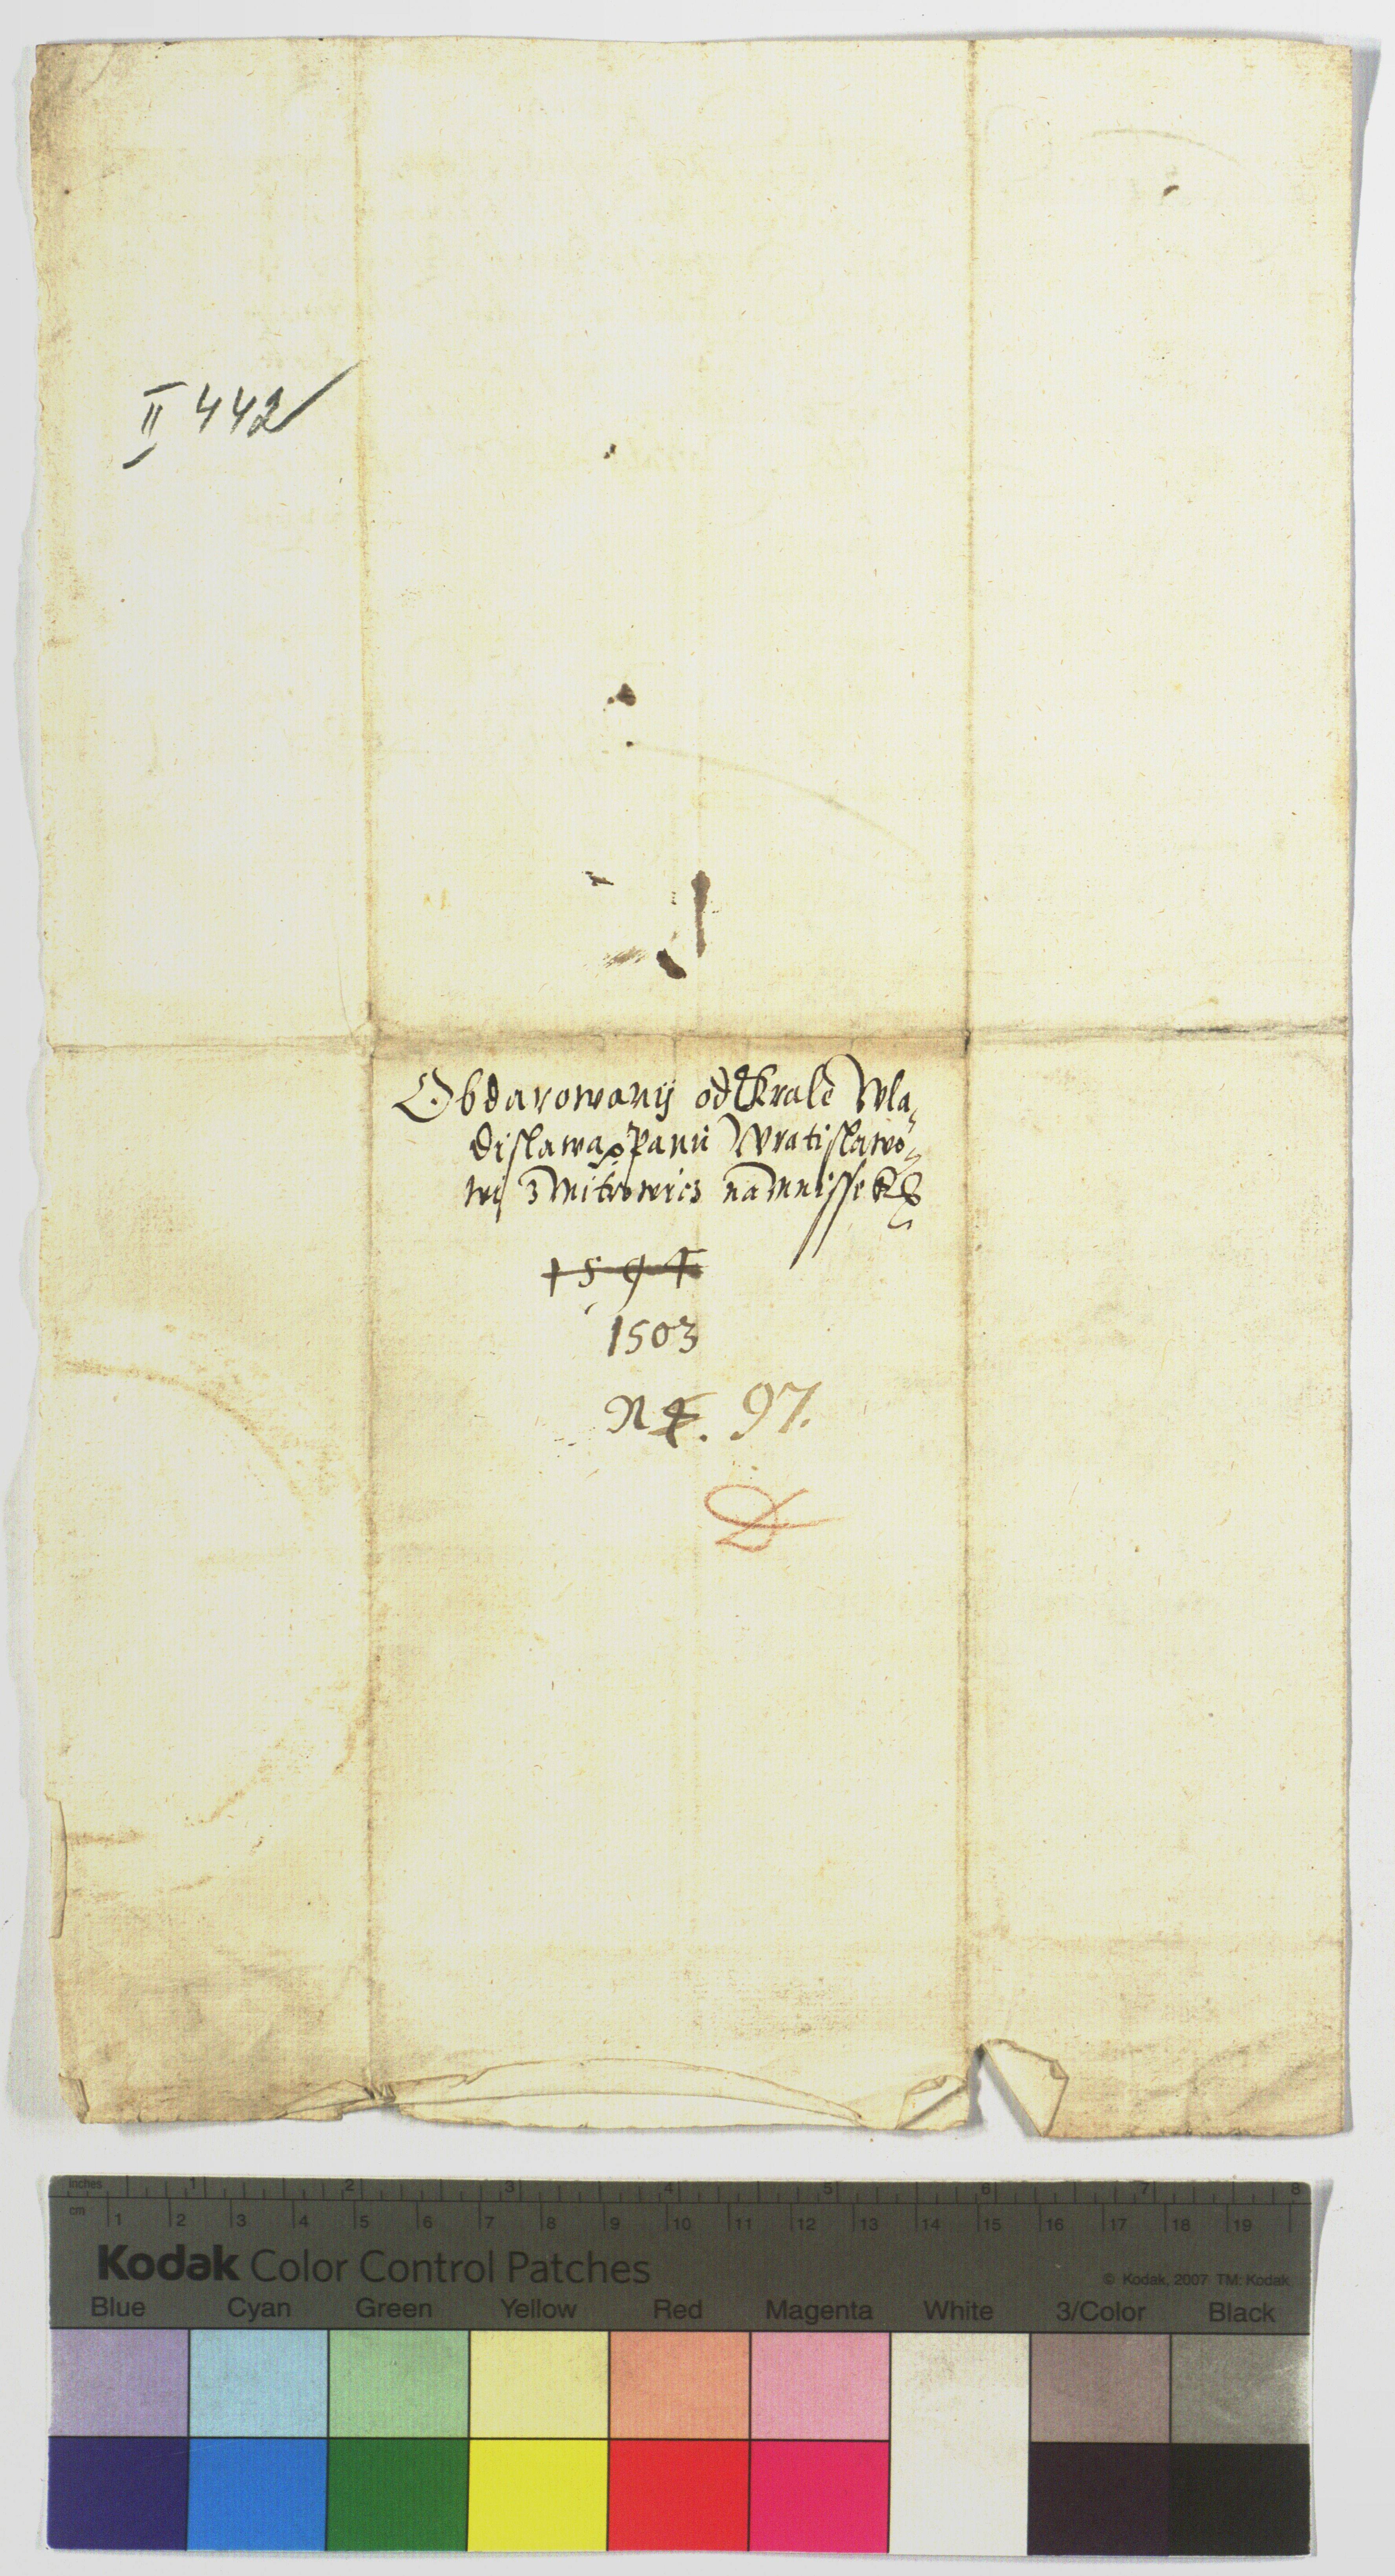 II 442
Obdarowanij od Krale Wla„
dislawa Panu Wratislawo„
wij z Mitrowicz na Mnissek
1594
1503
N 4. 97.
D
inches 1 2 3 4 5 6 7 8
cm 1 2 3 4 5 6 7 8 9 10 11 12 13 14 15 16 17 18 19
Kodak Color Control Patches
© Kodak, 2007 TM: Kodak
Blue Cyan Green Yellow Red Magenta White 3/Color Black